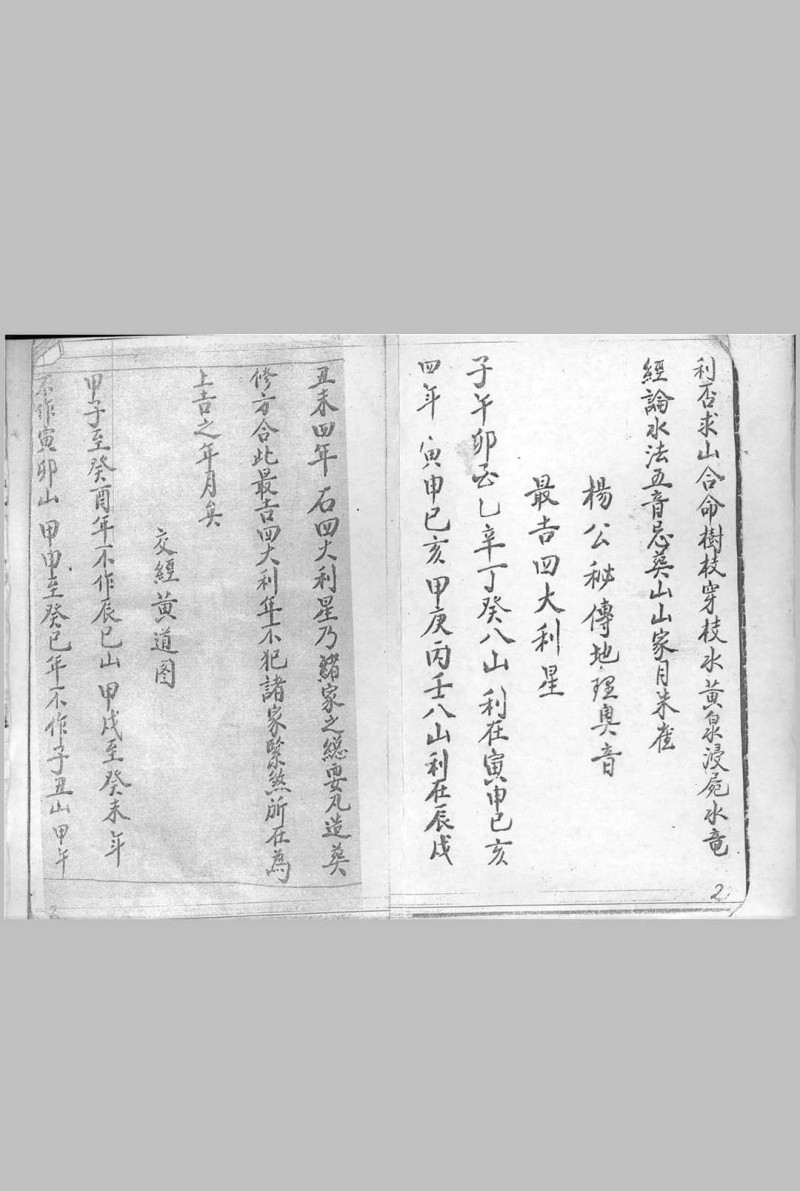 利否求山合命樹枝穿枝水黃泉浸屍水竜
經論水法五音忌葬山山家月朱雀
楊公秘傳地理奧音
最吉四大利星
子午卯酉乙辛丁癸八山利在寅申巳亥
四年寅申巳亥甲庚丙壬八山利在辰戌
2
丑未四年石四大利星乃諸家之總要凡造葬
修方合此最吉四大利年不犯諸家緊煞所在為
上吉之年月矣
交經黃道图
甲子至癸酉年不作辰巳山甲戌至癸未年
不作寅卯山甲申至癸巳年不作子丑山甲午